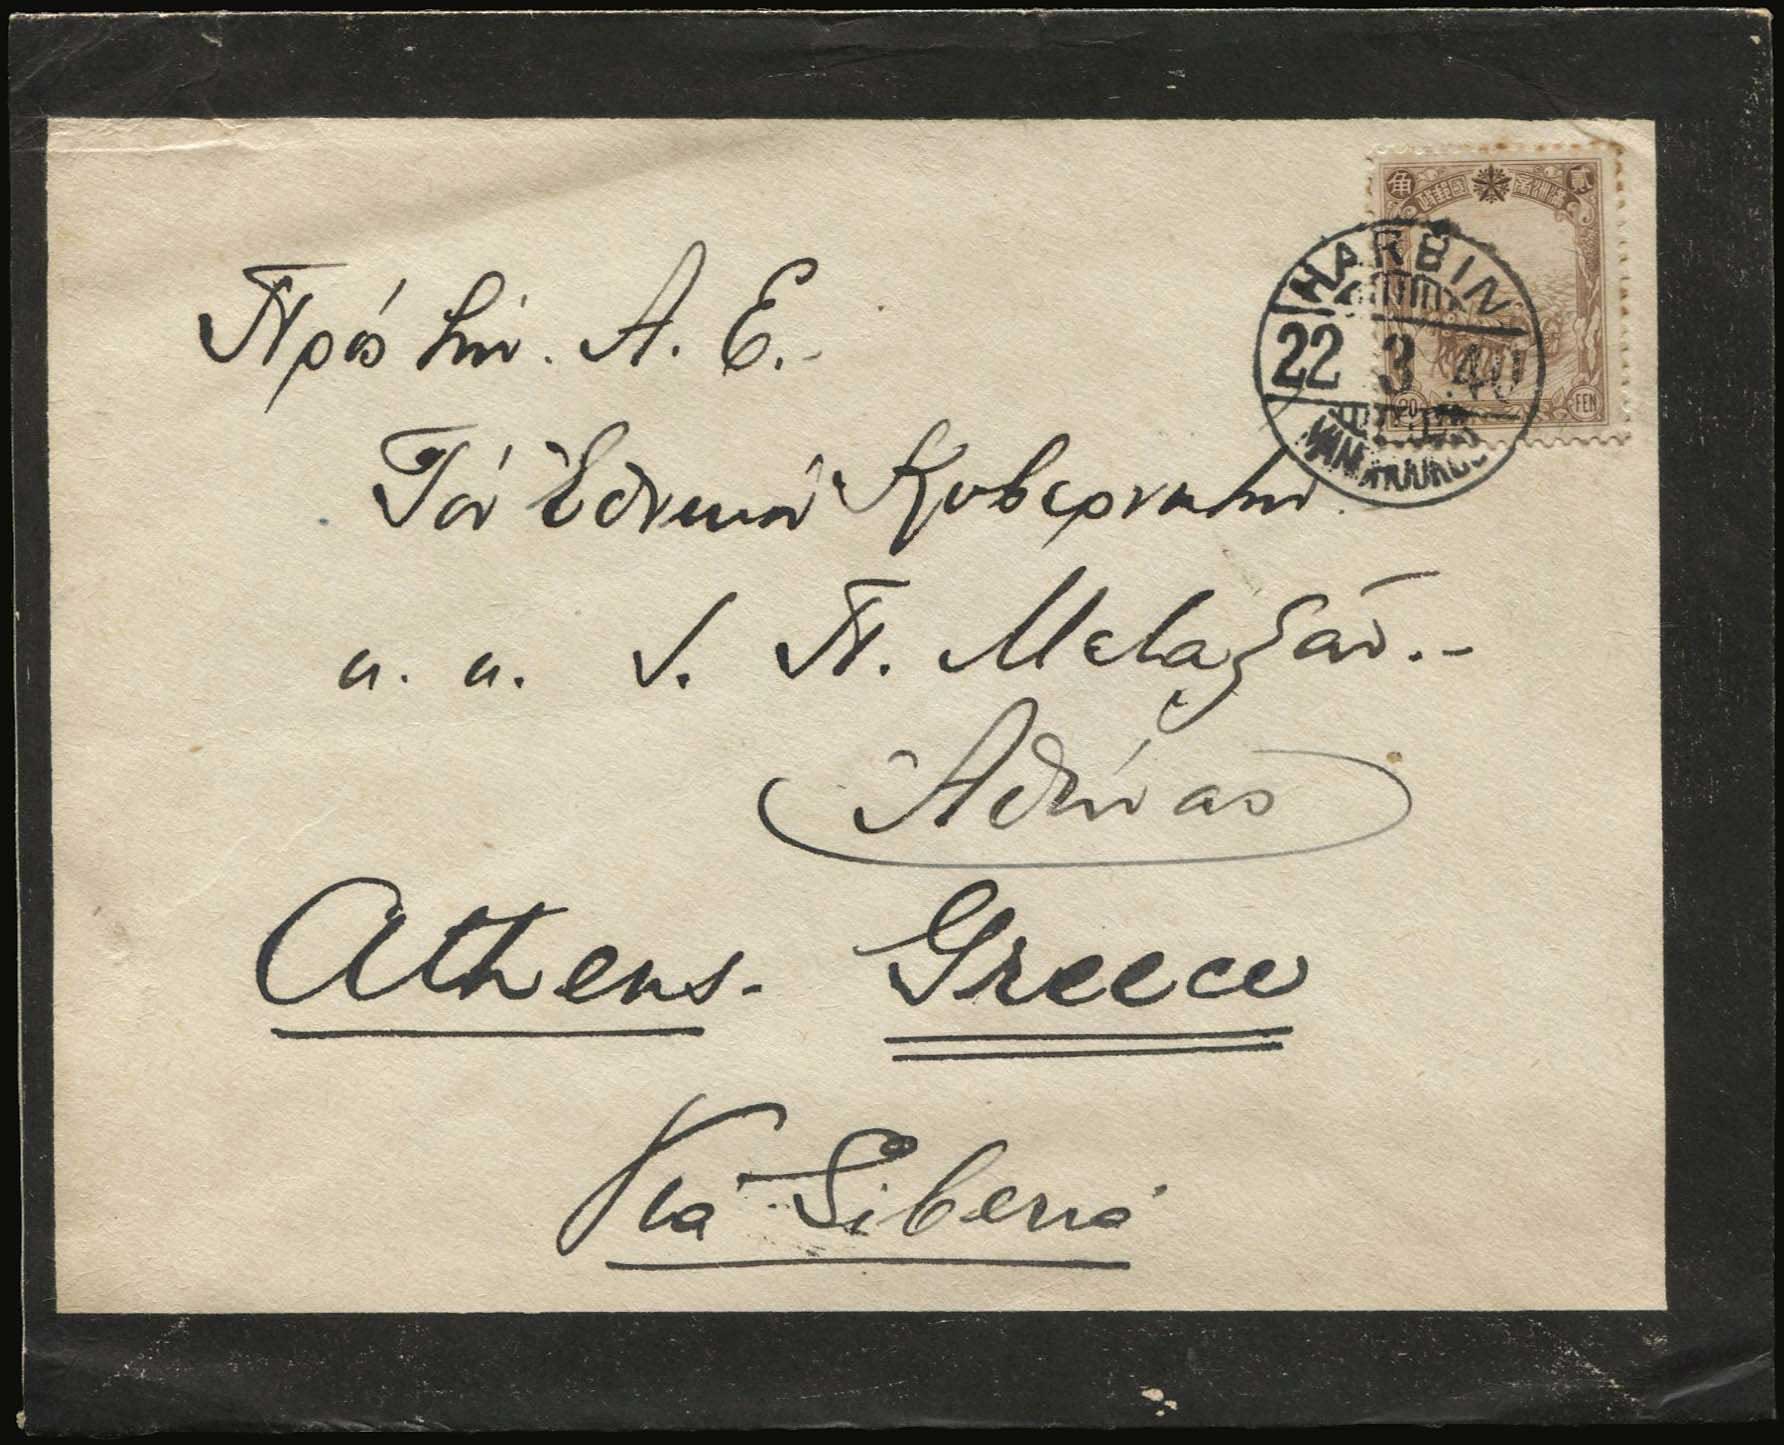 角 貳
HARBIN
22 3 40
MANCHOUKUO
20 FEN
Πρός την. Α. Ε.-
Τόν Ἐθνικόν Κυβερνήτην
κ. κ. Ι. Π. Μεταξάν.-
Ἀθήνας
Athens. Greece
Via Siberia